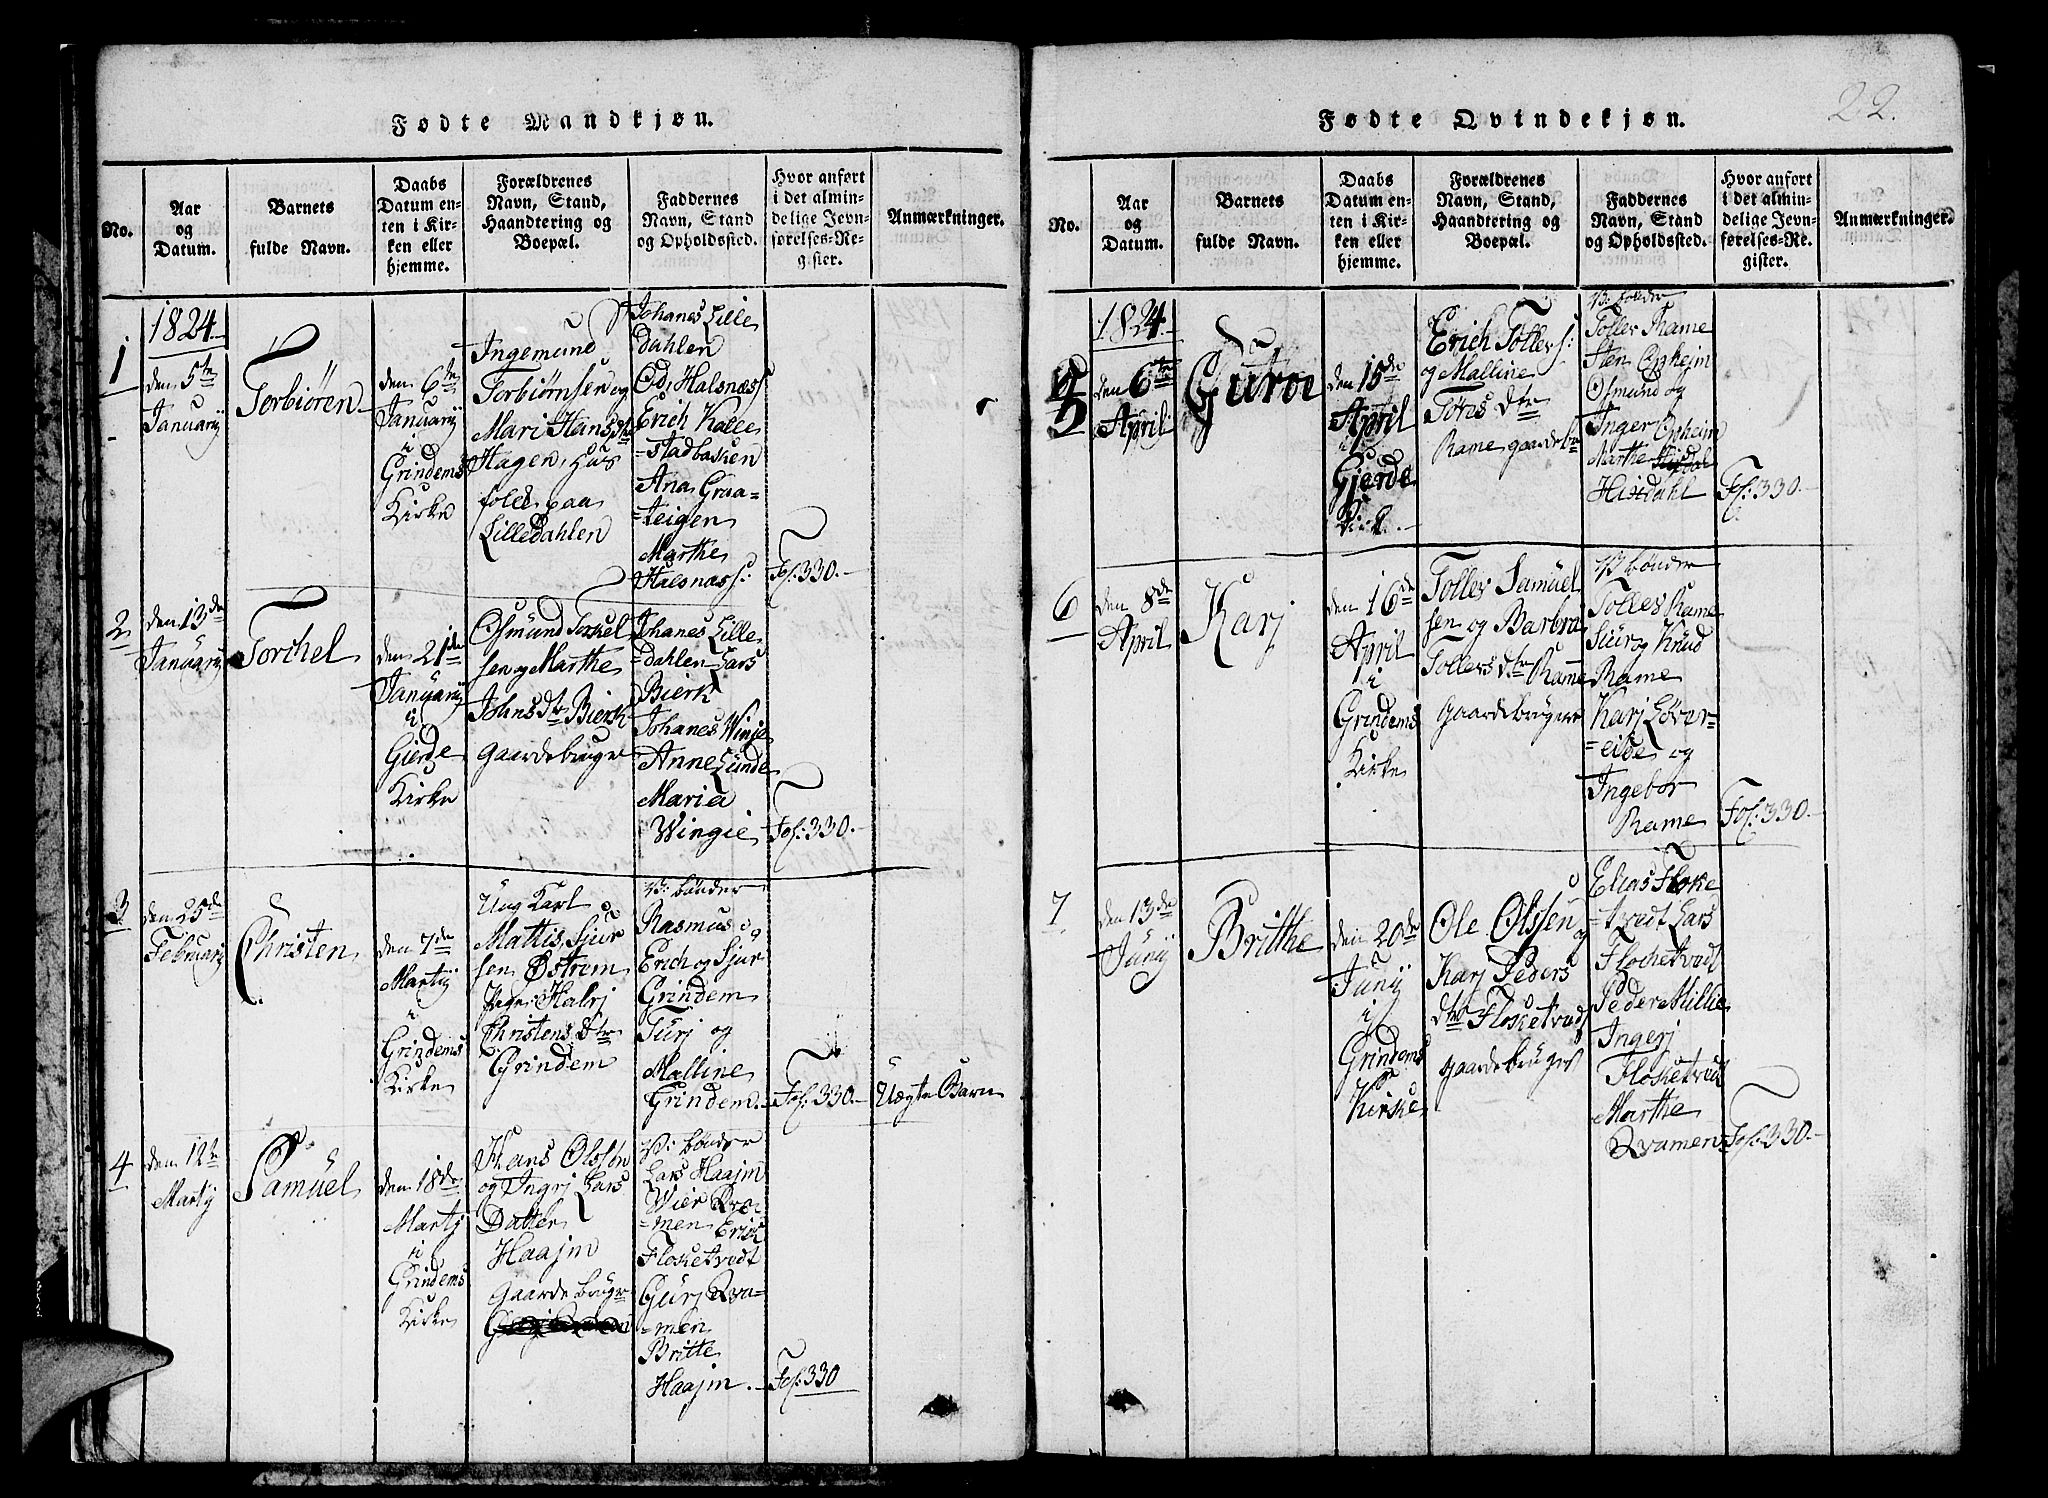 Fødte Mandkjøn.
No.
Aar
og
Datum.
Barnets
fulde Navn.
Daabs
Datum en-
ten i Kir-
ken eller
hjemme.
Forældrenes
Navn, Stand,
Haandtering og
Boepæl.
Faddernes
Navn, Stand
og Opholdssted.
Hvor anført
i det almin-
delige Jevn-
førelses-Re-
gister.
Anmærkninger.
1
1824
den 5te
Januarij
Torbiören
den 6te
Januarij
i
Grindems
Kirke
Ingemund
Torbiørnsen og
Mari Hans
Hagen, Huus
folk paa
Lilledahlen
Johanes Lille
dahlen
Od, Halsnæs
Erich Kalle
=stadbakken
Ana Graa-
=teigen
Marthe
Halsnæs:
Fol: 330.
2
den 13de
Januarij
Torchel
den 21de
Januarij
i
Gierde
Kirke
Osmund Torkel
sen og Marthe
Johns dtr Bierk
gaardebruger
Johanes Lille
=dahlen Lars
Bierk
Johanes Winje
Anne Lunde
Maria
Wingie
Fol: 330.
3
den 25de
Februarij
Christen
den 7de
Martij
i
Grindems
Kirke
Ung Karl
Mattis Sjur
sen Østrem
Pige Halvj
Christens Dtr
Grindem
V: bønder
Rasmus
Erich og Sjur
Grindem
Turj og
Malline
Grindem
Fol: 330.
Uægte Barn
4
den 12te
Martij
Samüel
den 18de
Martij
i
Grindems
Kirke
Hans Olssøn
og Ingrj Lars
Datter
Haajm
Gaardebruger
V: bønder
Lars Haajm
Wier Qva-
=men Erick
Flosketvedt
Gurj Qva-
=men
Britte
Haajm.
Fol: 330
Fødte Qvindekjøn.
22.
No.
Aar
og
Datum.
Barnets
fulde Navn.
Daabs
Datum en-
ten i Kir-
ken eller
hjemme.
Forældrenes
Navn, Stand,
Haandtering og
Boepæl.
Faddernes
Navn, Stand
og Opholdssted.
Hvor anført
i det almin-
delige Jevn-
førelses-Re-
gister.
Anmærkninger.
5
1824
den 6te
April
Guroe
den 15de
April
i
Gjerde
Erich Tollevs:
og Malline
Tøris dtr
Rame gaardebr
V: bønder
Tollev Rame
Sten Opheim
Osmund og
Inger Opheim
Marthe
Hisdahl
Fol: 330.
6
den 8de
April
Karj
den 16de
April
i
Grindems
Kirke
Tollev Samüel
sen og Barbra
Tollevs dtr Rame
Gaardebruger
V bønder
Tollef Rame
Siur og Knud
Rame
Karj Løver-
=eide og
Ingebor
Rame
Fol: 330.
7
den 13de
Junij
Britthe
den 20de
Junij
i
Grindems
Kirke
Ole Olssen og
Karj Peders
dtr Flosketvedt
gaardebruger
Elias Floske
=tvedt Lars
Flochetvedt
Peder Millie
Ingerj
Flosketvedt
Marthe
Qvamen
Fol: 330.